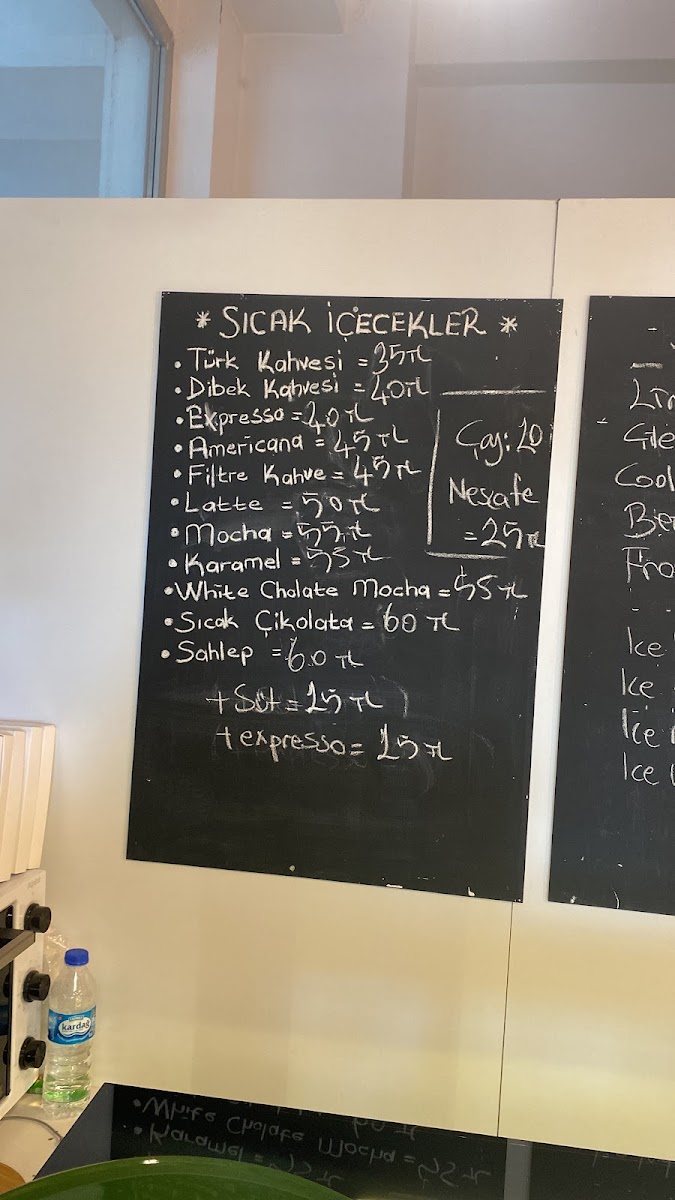 * SICAK İÇECEKLER *
• Türk Kahvesi = 35TL
• Dibek Kahvesi = 40TL
• Expresso = 40TL
• Americana = 45TL
• Filtre Kahve = 45TL
• Latte = 50TL
• Mocha = 55TL
• Karamel = 55TL
• White Cholate Mocha = 55TL
• Sıcak Çikolata = 60TL
• Sahlep = 60TL
+ Süt = 15TL
+ expresso = 15TL
Çay: 20
Nesafe
= 25TL
Cool
Fro
Ice
Ice
Ice
Ice
kardağ